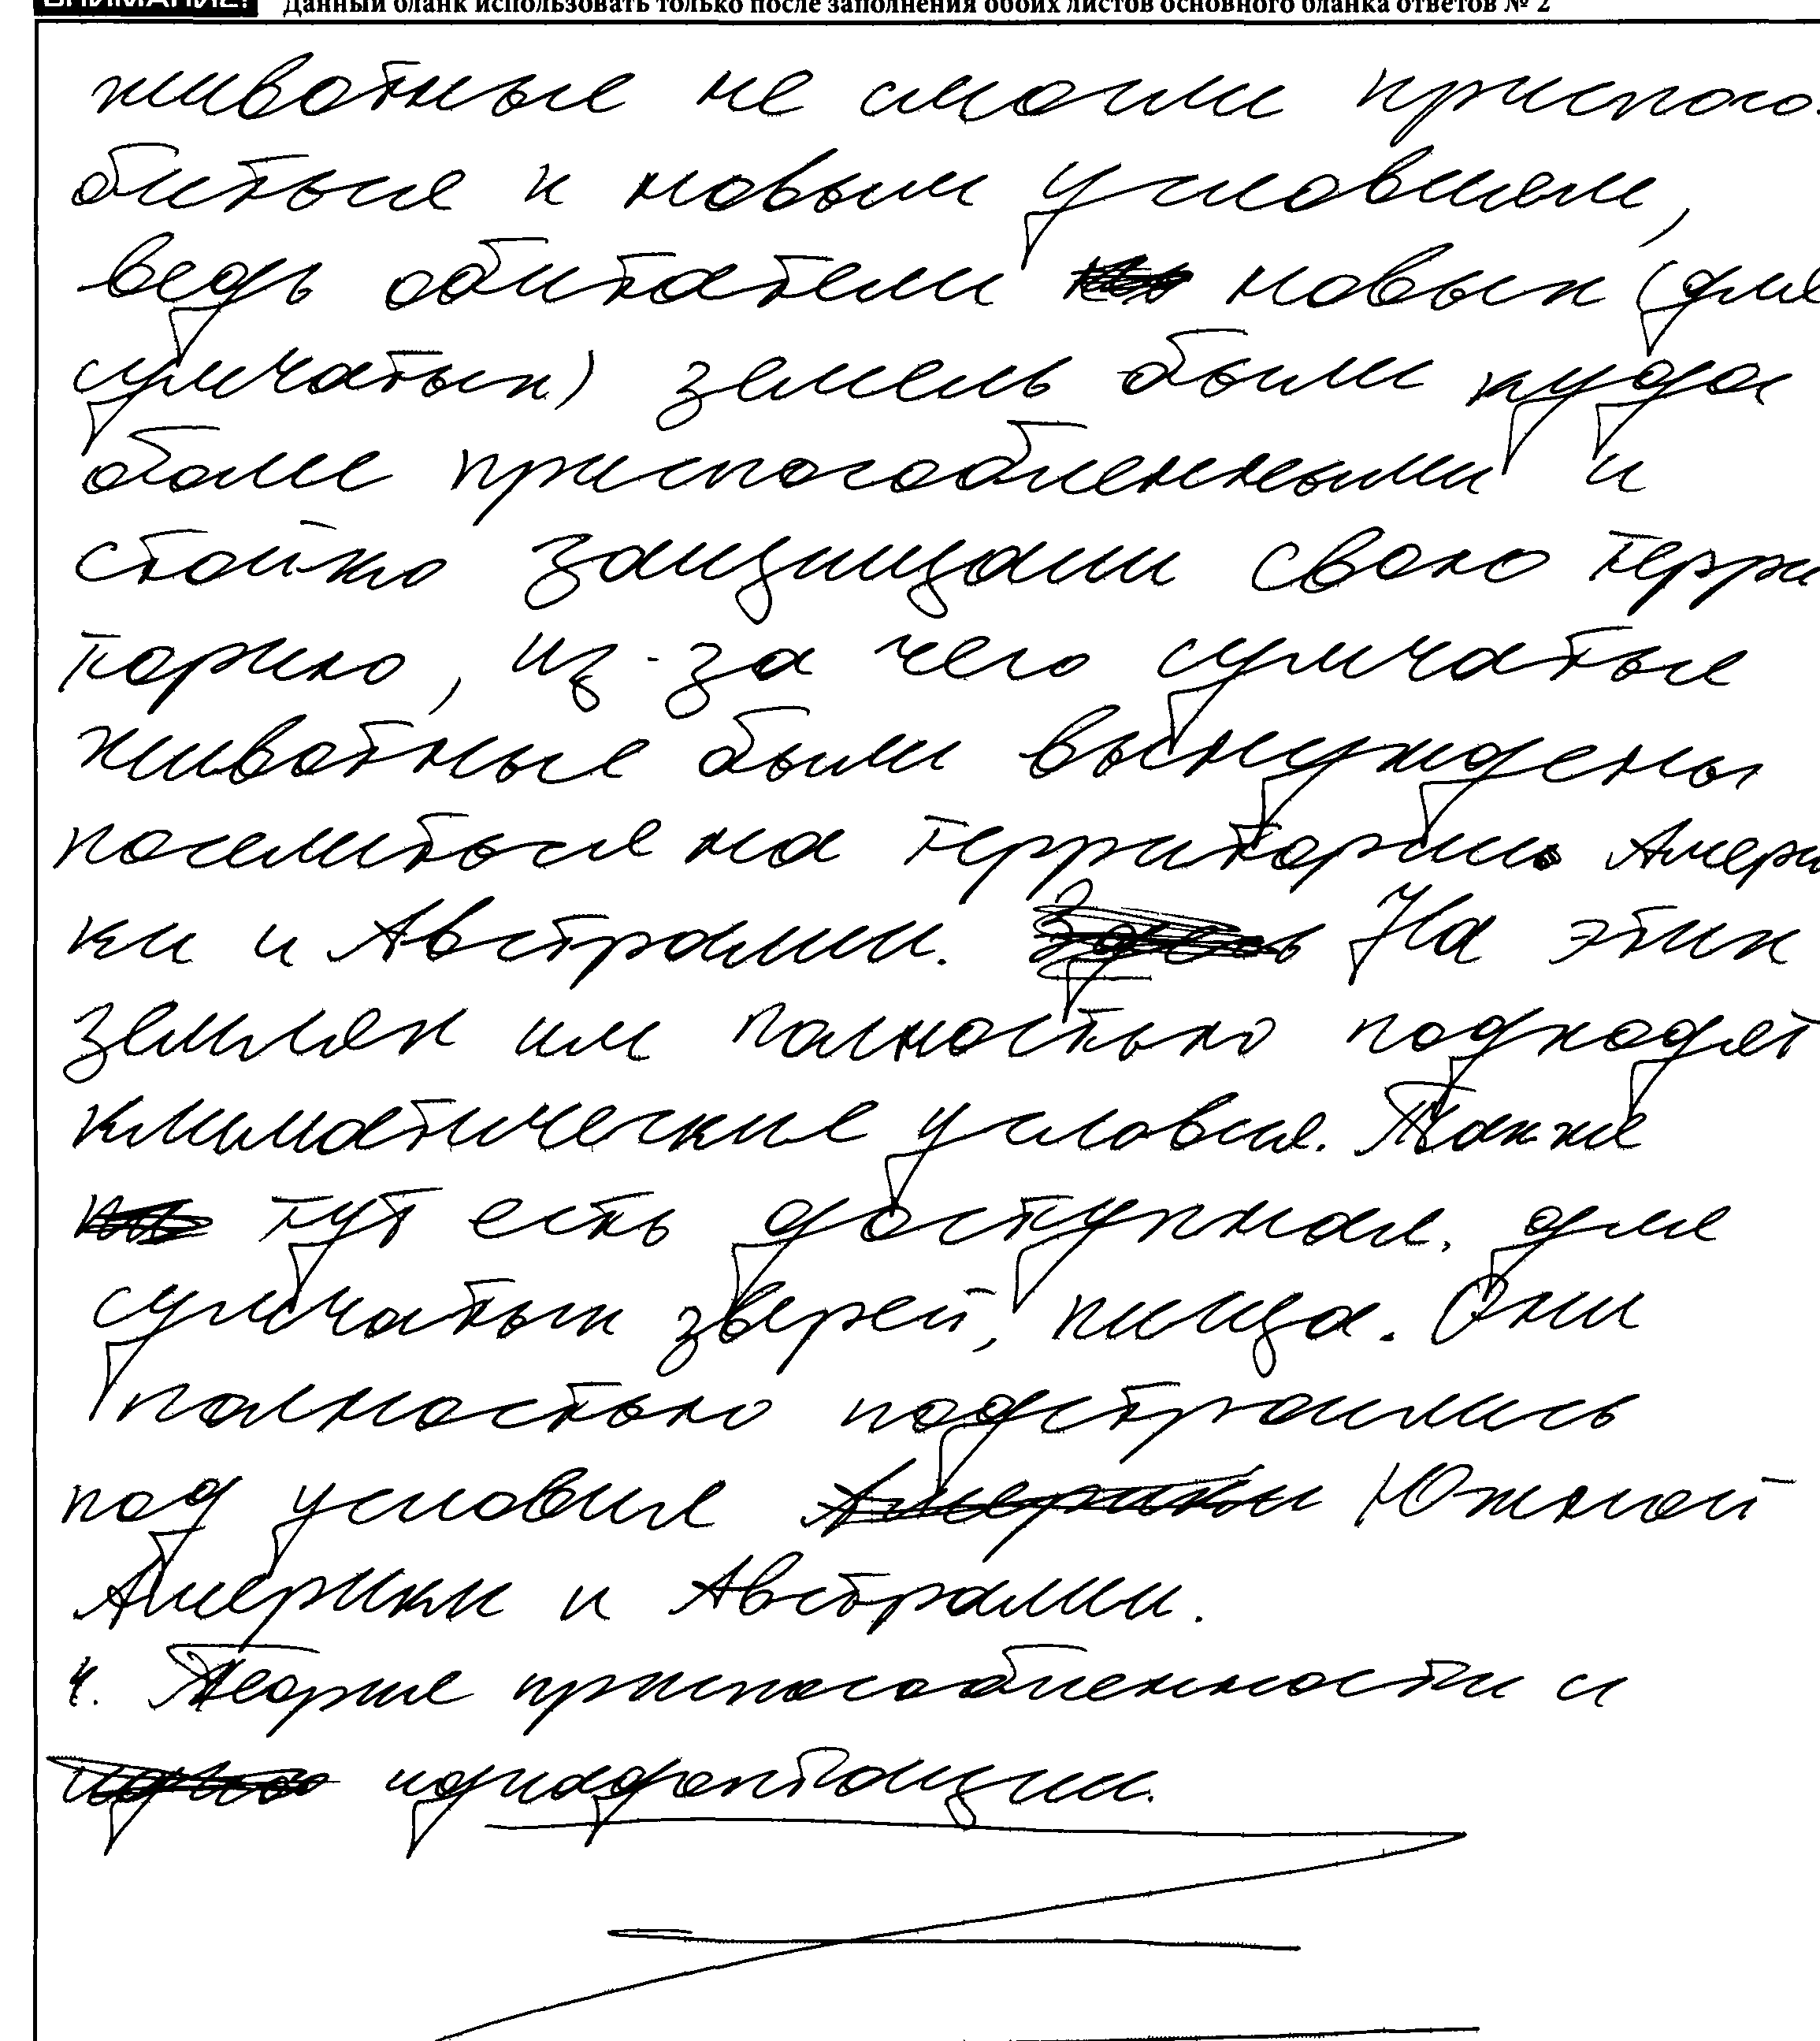 ВНИМАНИЕ! Данный бланк использовать только после заполнения обоих листов основного бланка ответов № 2
животные не смогли приспосо-
биться к новым условиям,
ведь обитатели новых (для
сумчатых) земель были куда
более приспособленными и
стойко защищали свою терри
торию, из-за чего сумчатые
животные были вынуждены
поселиться на территории Амери
ки и Австралии. На этих
землях им полностью подходят
климатические условия. Также
тут есть доступная, для
сумчатых зверей, пища. Они
полностью подстроились
под условия Южной
Америки и Австралии.
4. Теория приспособленности и